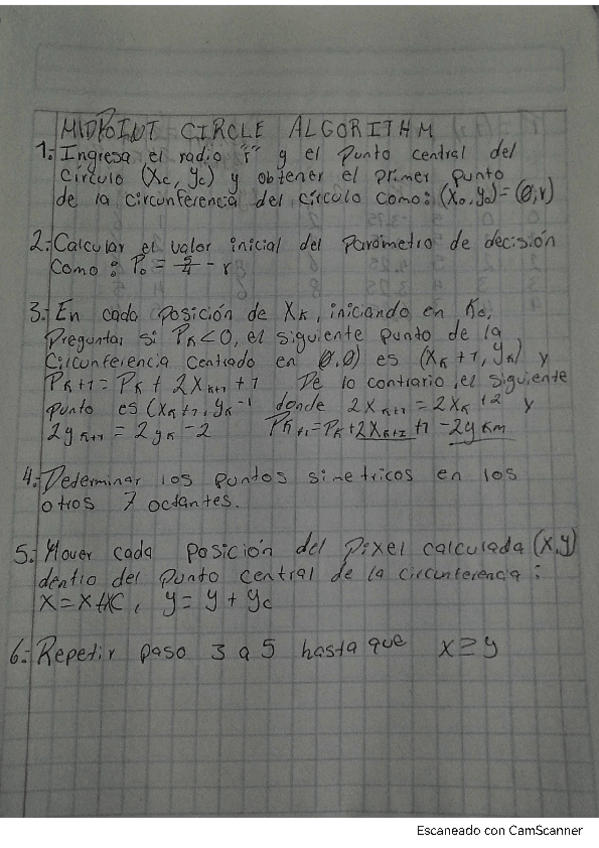 MIDPOINT CIRCLE ALGORITHM
1. Ingresa el radio "r" y el Punto central del
Círculo (Xc, yc) y obtener el primer punto
de la circunferencia del círculo como: (x₀, y₀) = (0, r)
2. Calcular el valor inicial del parámetro de decisión
Como : P₀ = 5/4 - r
3. En cada posición de Xₖ, iniciando en
Preguntar si Pₖ < 0, el siguiente punto de la
Circunferencia Centrado en (0,0) es (Xₖ + 1, yₖ) y
Pₖ+1 = Pₖ + 2Xₖ₊₁ + 1 De lo contrario, el siguiente
punto es (Xₖ + 1, yₖ - 1 donde 2Xₖ₊₁ = 2Xₖ + 2 y
2yₖ₊₁ = 2yₖ - 2 Pₖ₊₁ = Pₖ + 2Xₖ₊₁ + 1 - 2y
4. Determinar los puntos simetricos en los
otros 7 octantes.
5. Mover cada posición del pixel calculada (x,y)
dentro del punto central de la circunferencia :
X = X + XC, y = y + yc
6. Repetir paso 3 a 5 hasta que x ≥ y
Escaneado con CamScanner